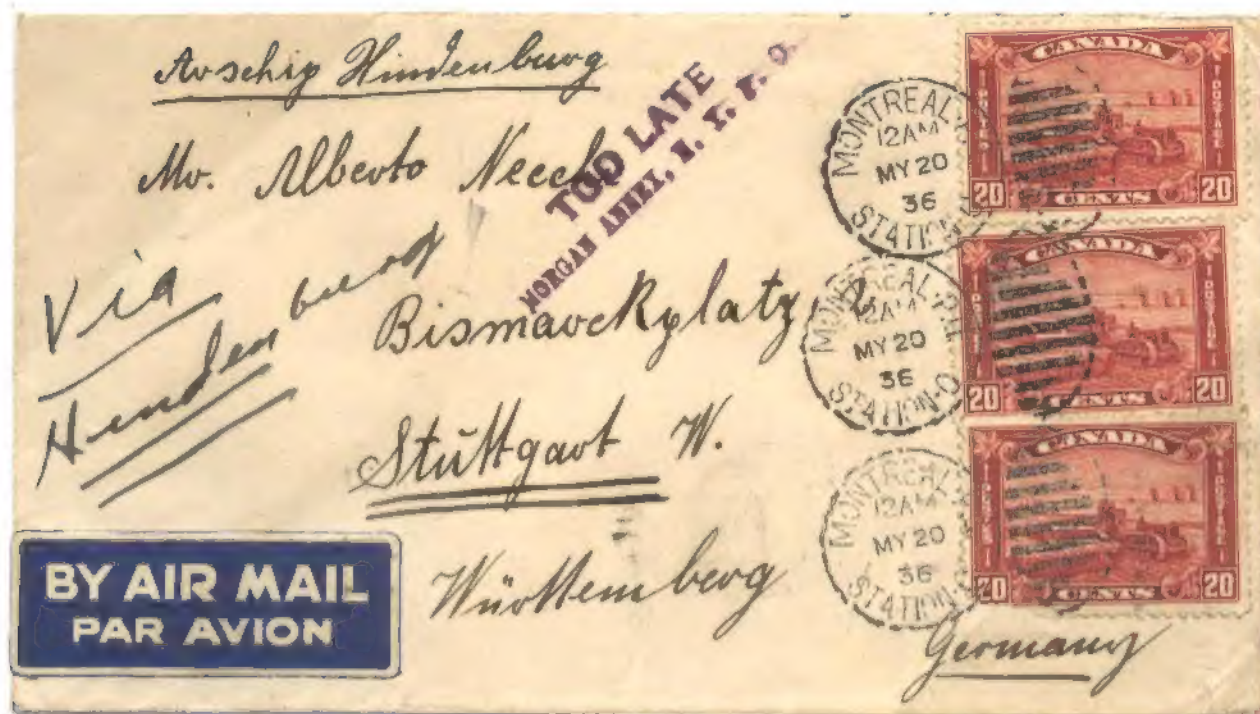 Arschip Hindenburg
Mr. Alberto
TOO LATE
MORGAN ANNEX, N. Y. P. O.
Via
Hendenburg
Bismarckplatz
Stuttgart W.
Württemberg
Germany
BY AIR MAIL
PAR AVION
MONTREAL
12AM
MY 20
36
STATION
MONTREAL P.Q.
12AM
MY 20
36
STATION-O
MONTREAL
12AM
MY 20
36
STATION
CANADA
POSTES
POSTAGE
20
CENTS
20
CANADA
POSTES
POSTAGE
20
CENTS
20
CANADA
POSTES
POSTAGE
20
CENTS
20